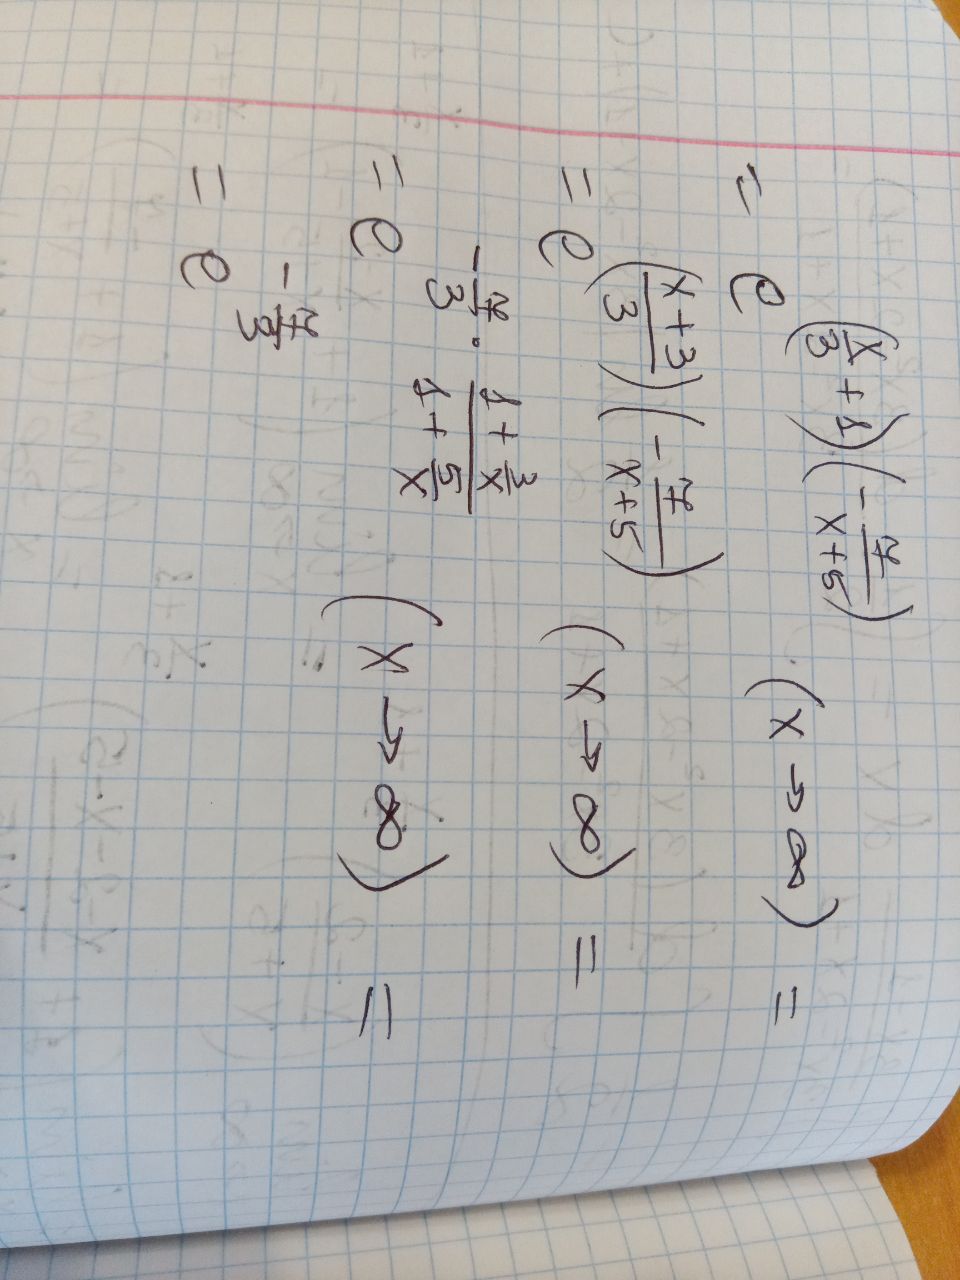 = e^{(x/3 + 1)(-7/(x+5))} (x → ∞) =
= e^{((x+3)/3)(-7/(x+5))} (x → ∞) =
= e^{-7/3 · (1 + 3/x)/(1 + 5/x)} (x → ∞) =
= e^{-7/3}